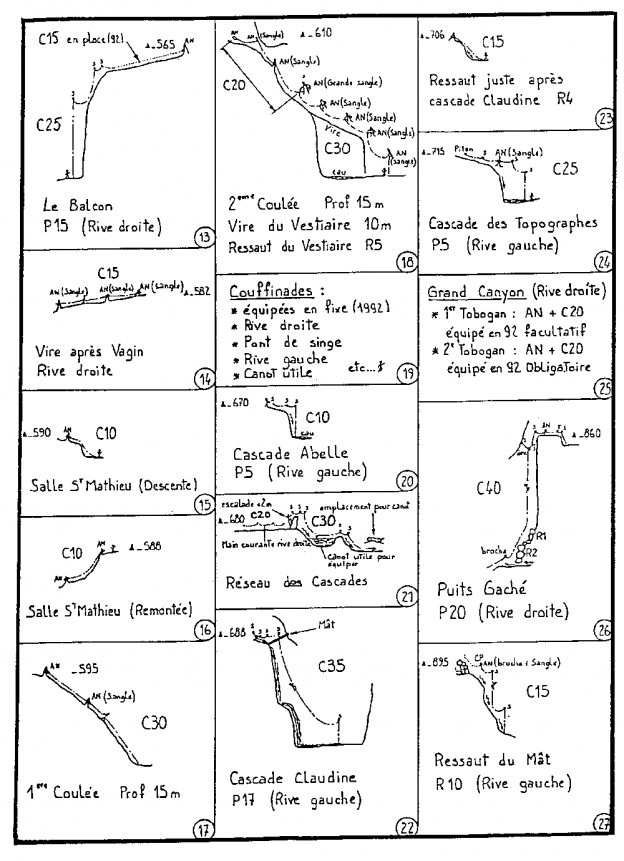 C15 en place (92)
▲_565
AN
S S
C25
Le Balcon
P15 (Rive droite)
13
C15
AN (Sangle) AN (Sangle) AN (Sangle)
▲_582
Vire après Vagin
Rive droite
14
▲_590
AN
C10
Salle St Mathieu (Descente)
15
C10
AN S
▲_588
AN
Salle St Mathieu (Remontée)
16
AN
_595
AN (Sangle)
C30
1ère Coulée Prof 15m
17
AN AN (Sangle)
▲_610
AN (Sangle)
C20
AN (Grande sangle)
AN (Sangle)
AN (Sangle)
Vire
AN (Sangle)
C30
AN (Sangle)
eau
2ème Coulée Prof 15m
Vire du Vestiaire 10m
Ressaut du Vestiaire R5
18
Couffinades :
* équipées en fixe (1992)
* Rive droite
* Pont de singe
* Rive gauche
* Canot utile etc...
19
▲_670
S S S
C10
eau
Cascade Abelle
P5 (Rive gauche)
20
escalade +2m
S S S
emplacement pour canot
▲_680
C20
C30
S S
Main courante rive droite
Canot utile pour équiper
Réseau des Cascades
21
▲_688
S S S S
Mât
C35
Cascade Claudine
P17 (Rive gauche)
22
▲_706
C15
Ressaut juste après
cascade Claudine R4
23
▲_715
Piton S AN (Sangle) S
C25
Cascade des Topographes
P5 (Rive gauche)
24
Grand Canyon (Rive droite)
* 1er Tobogan : AN + C20
équipé en 92 facultatif
* 2e Tobogan : AN + C20
équipé en 92 Obligatoire
25
S AN S S
▲_860
C40
R1
broche
R2
Puits Gaché
P20 (Rive droite)
26
▲_895
CP
AN (broche + Sangle)
S
C15
S
Ressaut du Mât
R10 (Rive gauche)
27